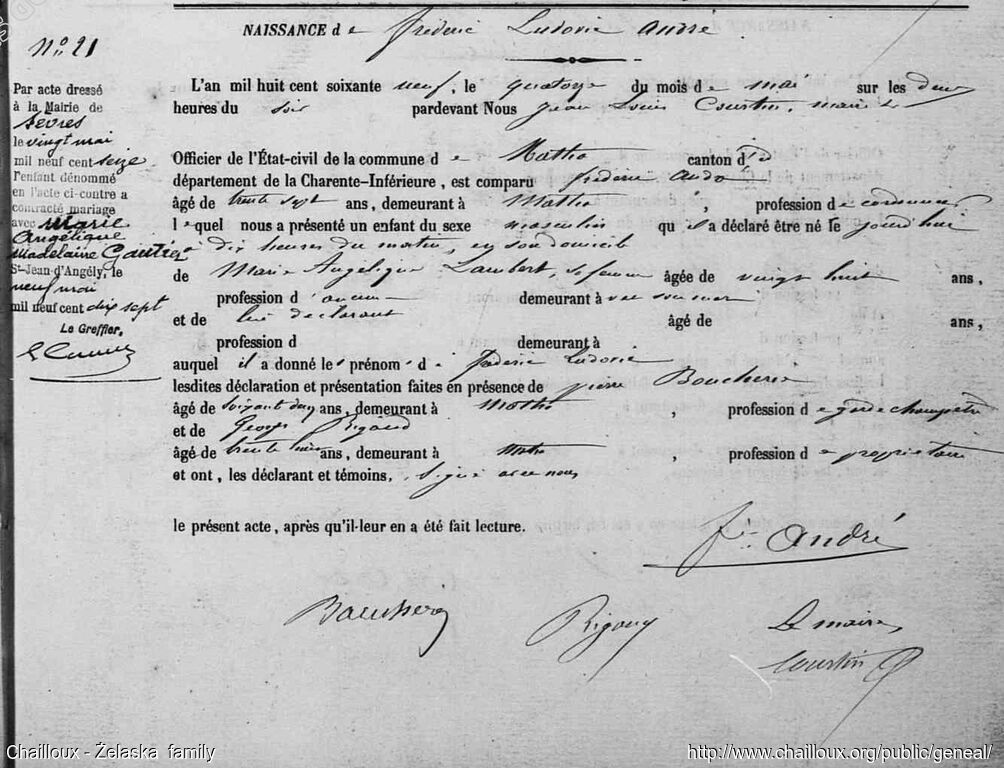 NAISSANCE de frédéric Ludovic André
N° 21
Par acte dressé
à la Mairie de
Sèvres
le vingt mai
mil neuf cent seize
l'enfant dénommé
en l'acte ci-contre a
contracté mariage
avec Marie
Angélique
Madelaine Gautrez
St-Jean d'Angély, le
neuf mai
mil neuf cent dix sept
Le Greffier,
L'an mil huit cent soixante neuf, le quatorze du mois de mai sur les deux
heures du soir pardevant Nous Jean Louis Courtin, maire
Officier de l'État-civil de la commune de Matha canton d
département de la Charente-Inférieure, est comparu frédéric André
âgé de trente sept ans, demeurant à Matha, profession de cordonnier
lequel nous a présenté un enfant du sexe masculin qu'il a déclaré être né le jourd'hui
à dix heures du matin, en son domicile
de Marie Angelique Lambert, sa femme âgée de vingt huit ans,
profession d'aucune demeurant à avec son mari
et de lui déclarant âgé de ans,
profession d demeurant à
auquel il a donné les prénoms de frédéric Ludovic
lesdites déclaration et présentation faites en présence de pierre Boucherie
âgé de soixante deux ans, demeurant à Matha profession de garde champêtre
et de Georges Rigaud
âgé de trente ans, demeurant à Matha, profession de propriétaire
et ont, les déclarant et témoins, signé avec nous
le présent acte, après qu'il leur en a été fait lecture.
fc André
Boucherie Rigaud Le maire
Courtin
Chailloux - Żelaska family http://www.chailloux.org/public/geneal/